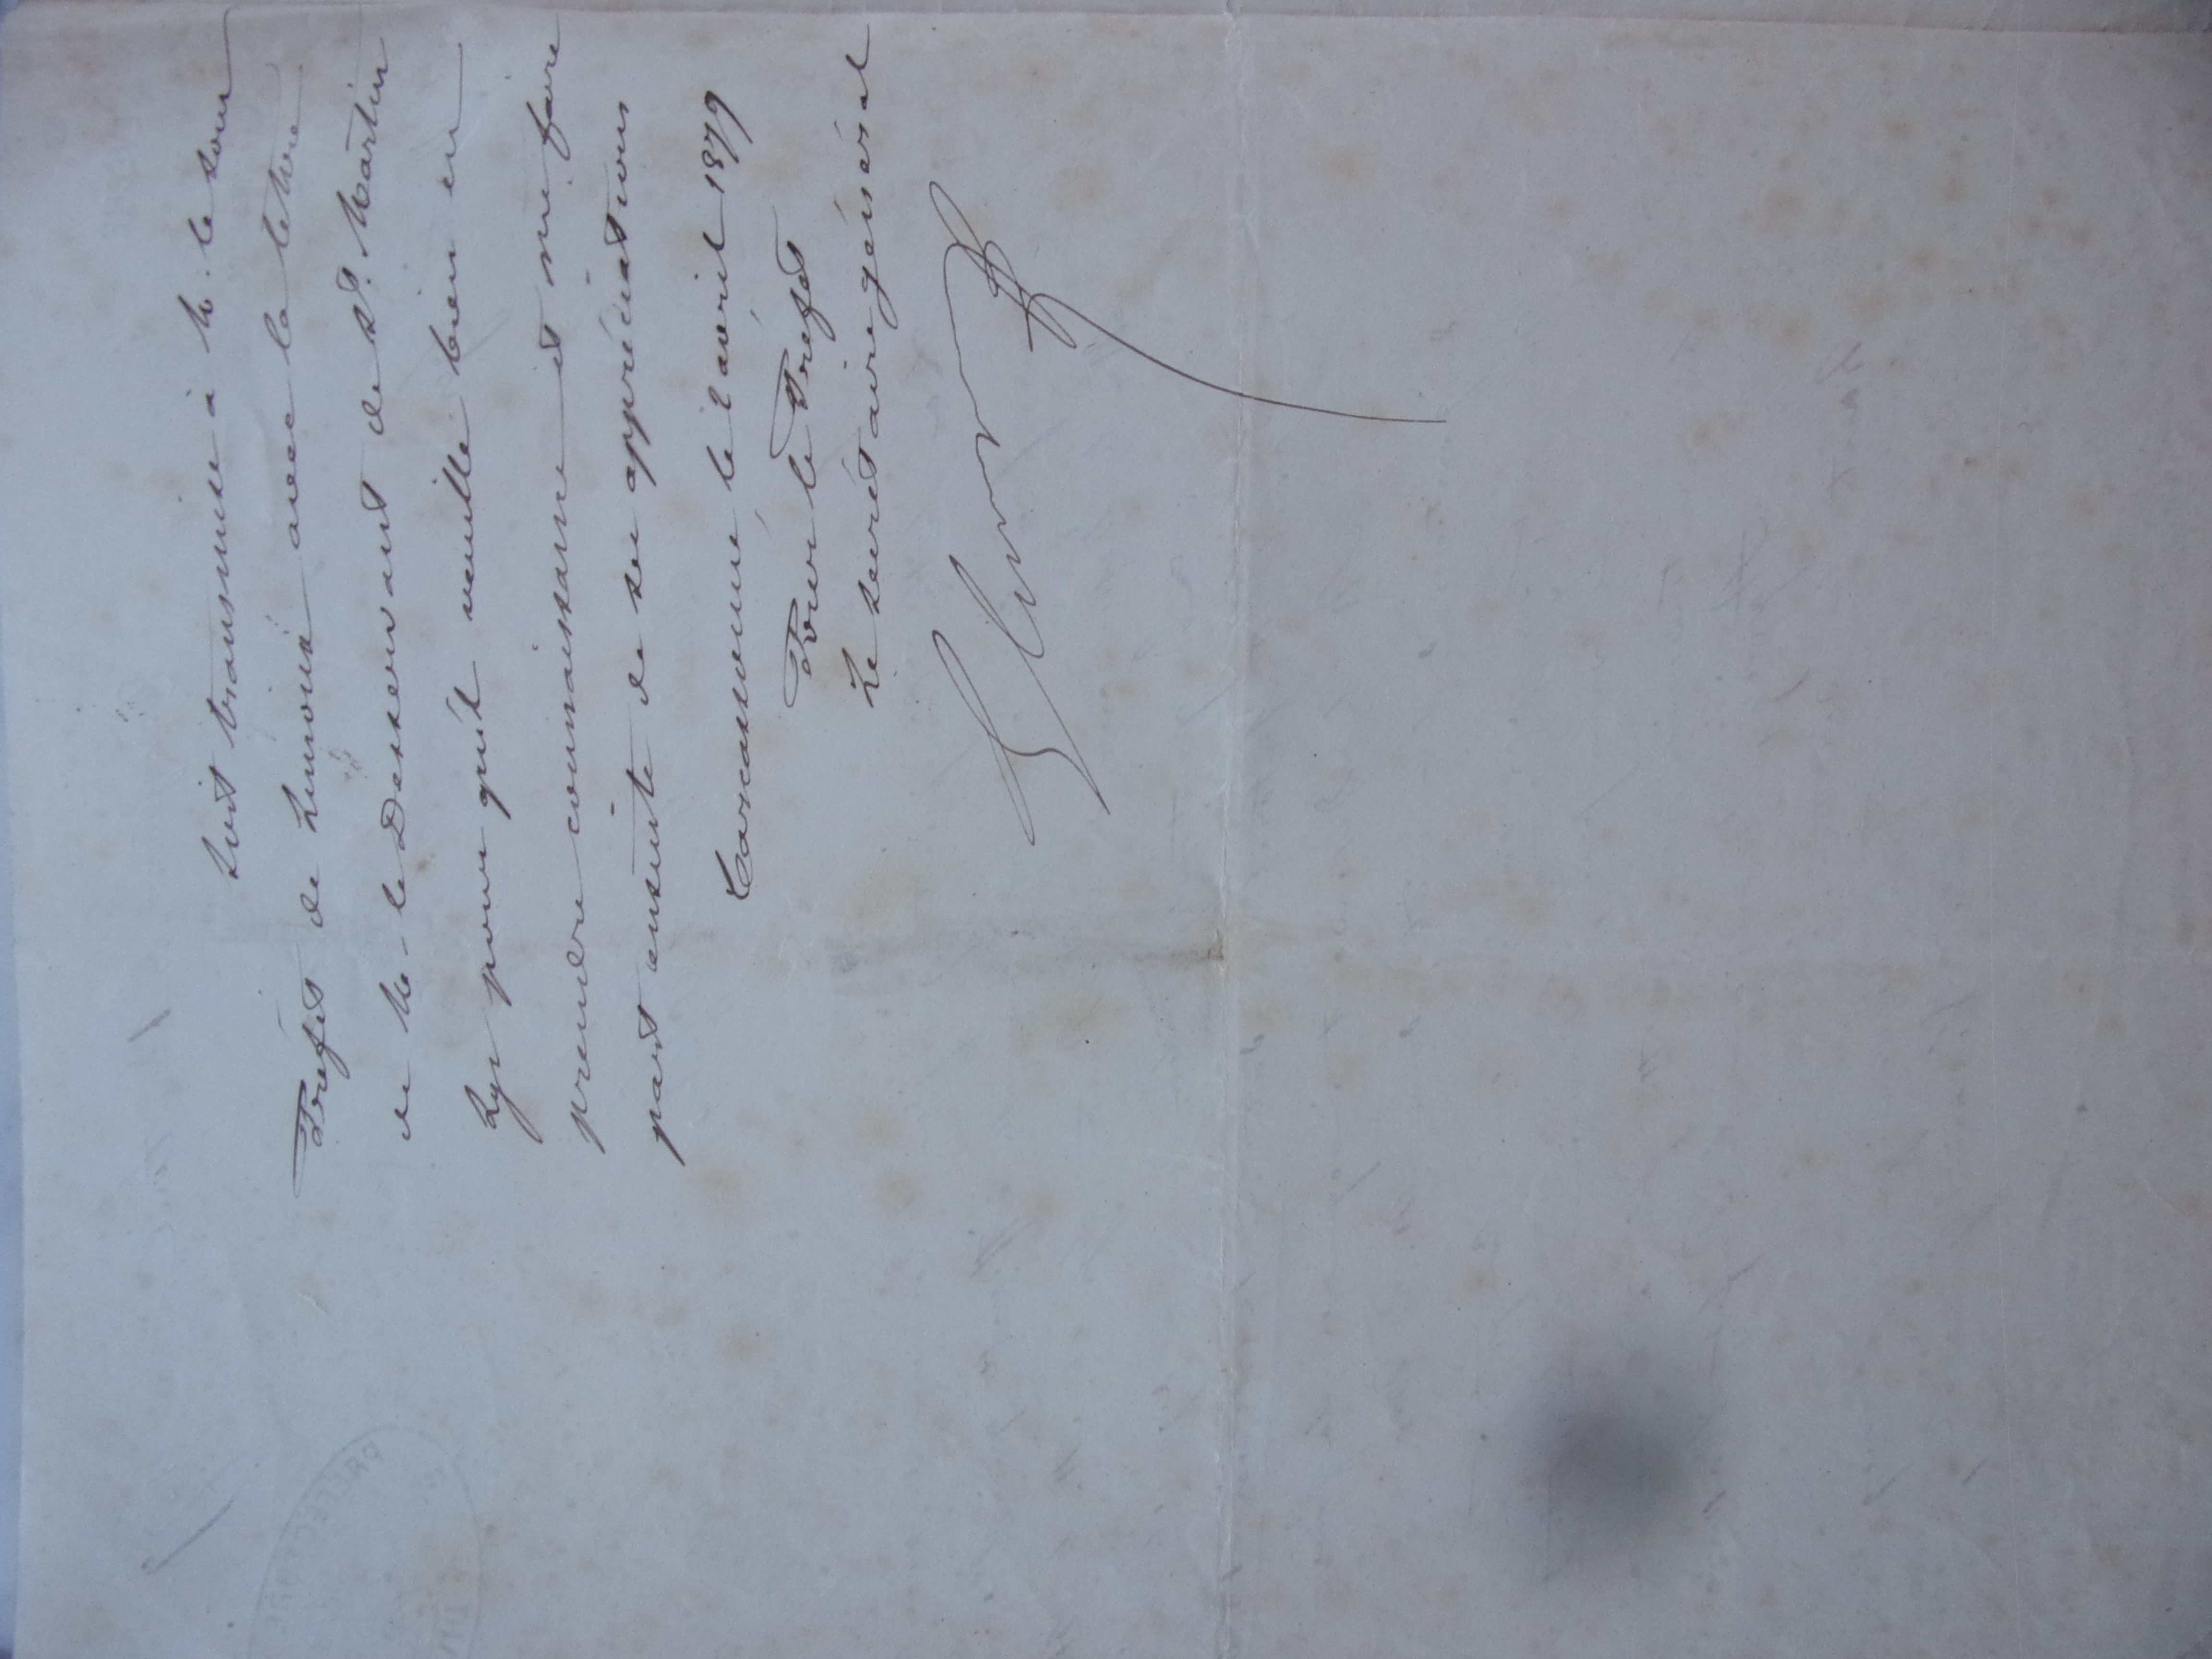 Soit transmise à M. le sous
Préfet de Limoux avec la lettre
de M. le Desservant de St. Martin
Lys pour qu'il veuille bien en
prendre connaissance et me faire
part ensuite de ses appréciations
Carcassonne le 2 avril 1879
Pour le Préfet
Le Secrétaire général
PREFECTURE